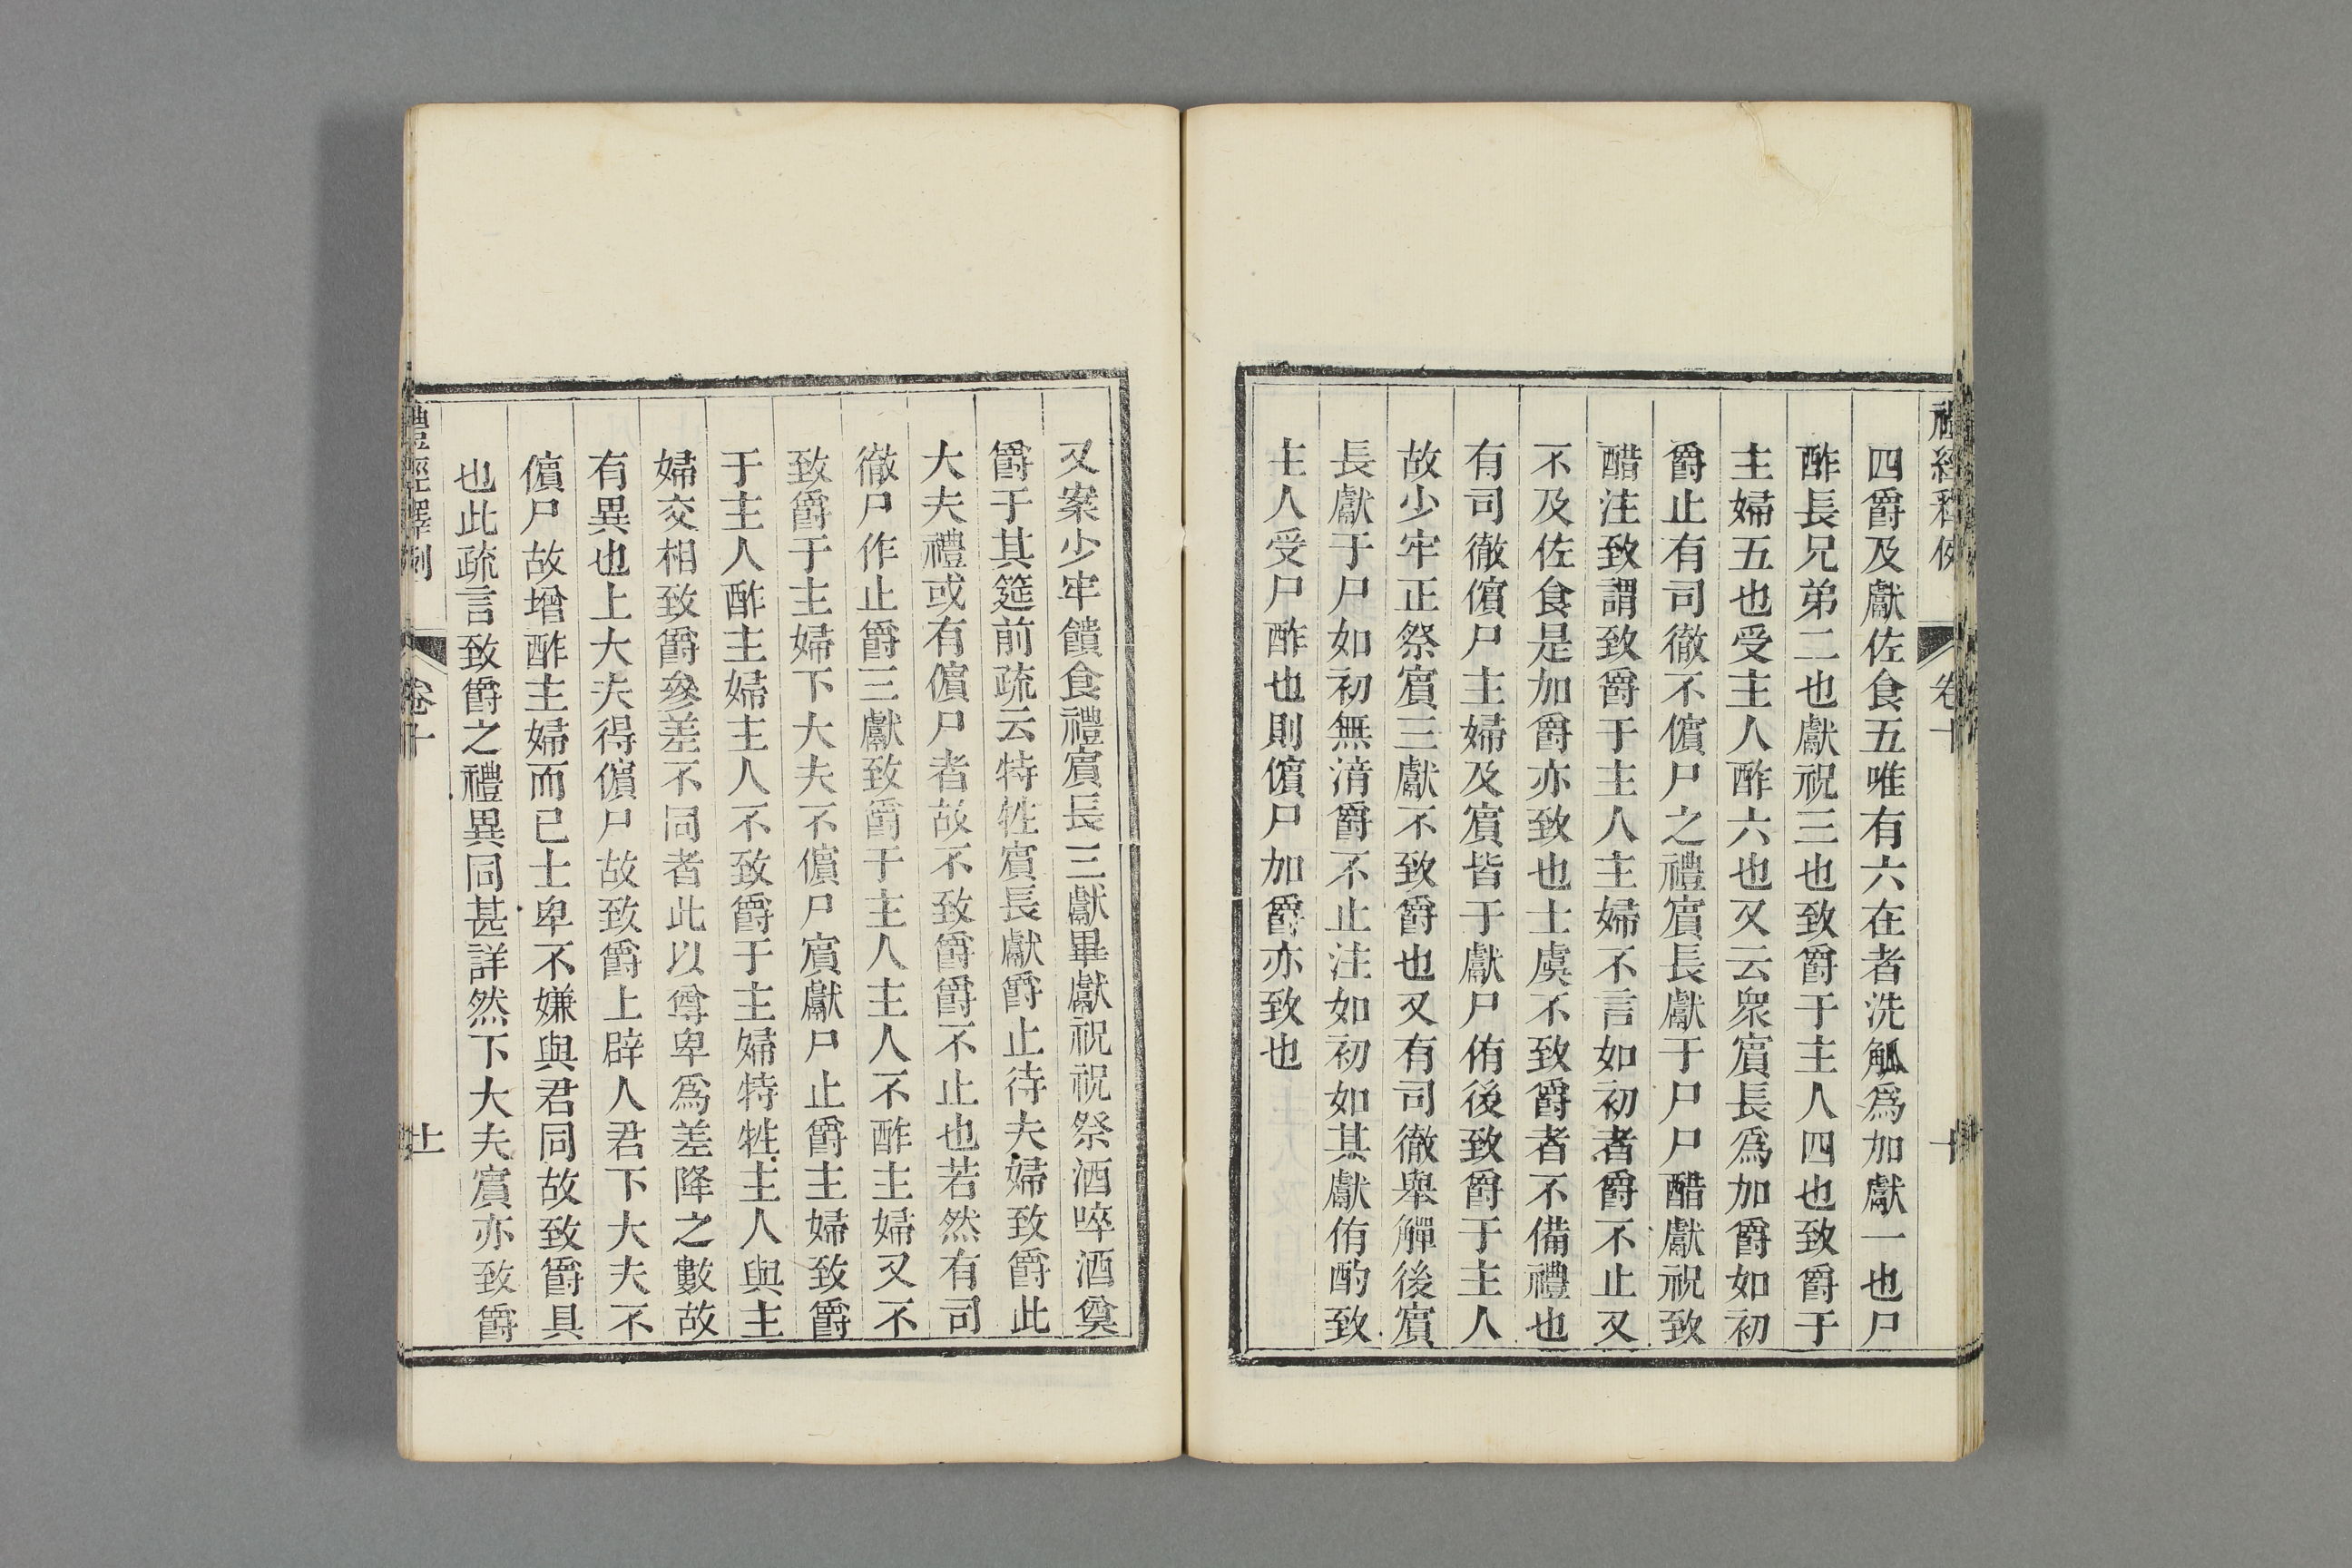 禮經釋例 卷十
四爵及獻佐食五唯有六在者洗觚爲加獻一也尸
酢長兄弟二也獻祝三也致爵于主人四也致爵于
主婦五也受主人酢六也又云衆賔長爲加爵如初
爵止有司徹不儐尸之禮賔長獻于尸尸醋獻祝致
醋注致謂致爵于主人主婦不言如初者爵不止又
不及佐食是加爵亦致也士虞不致爵者不備禮也
有司徹儐尸主婦及賔皆于獻尸侑後致爵于主人
故少牢正祭賔三獻不致爵也又有司徹舉觶後賔
長獻于尸如初無湇爵不止注如初如其獻侑酌致
主人受尸酢也則儐尸加爵亦致也
又案少牢饋食禮賔長三獻畢獻祝祝祭酒啐酒奠
爵于其筵前疏云特牲賔長獻爵止待夫婦致爵此
大夫禮或有儐尸者故不致爵爵不止也若然有司
徹尸作止爵三獻致爵于主人主人不酢主婦又不
致爵于主婦下大夫不儐尸賔獻尸止爵主婦致爵
于主人酢主婦主人不致爵于主婦特牲主人與主
婦交相致爵參差不同者此以尊卑爲差降之數故
有異也上大夫得儐尸故致爵上辟人君下大夫不
儐尸故增酢主婦而已士卑不嫌與君同故致爵具
也此疏言致爵之禮異同甚詳然下大夫賔亦致爵
禮經釋例 卷十 十一